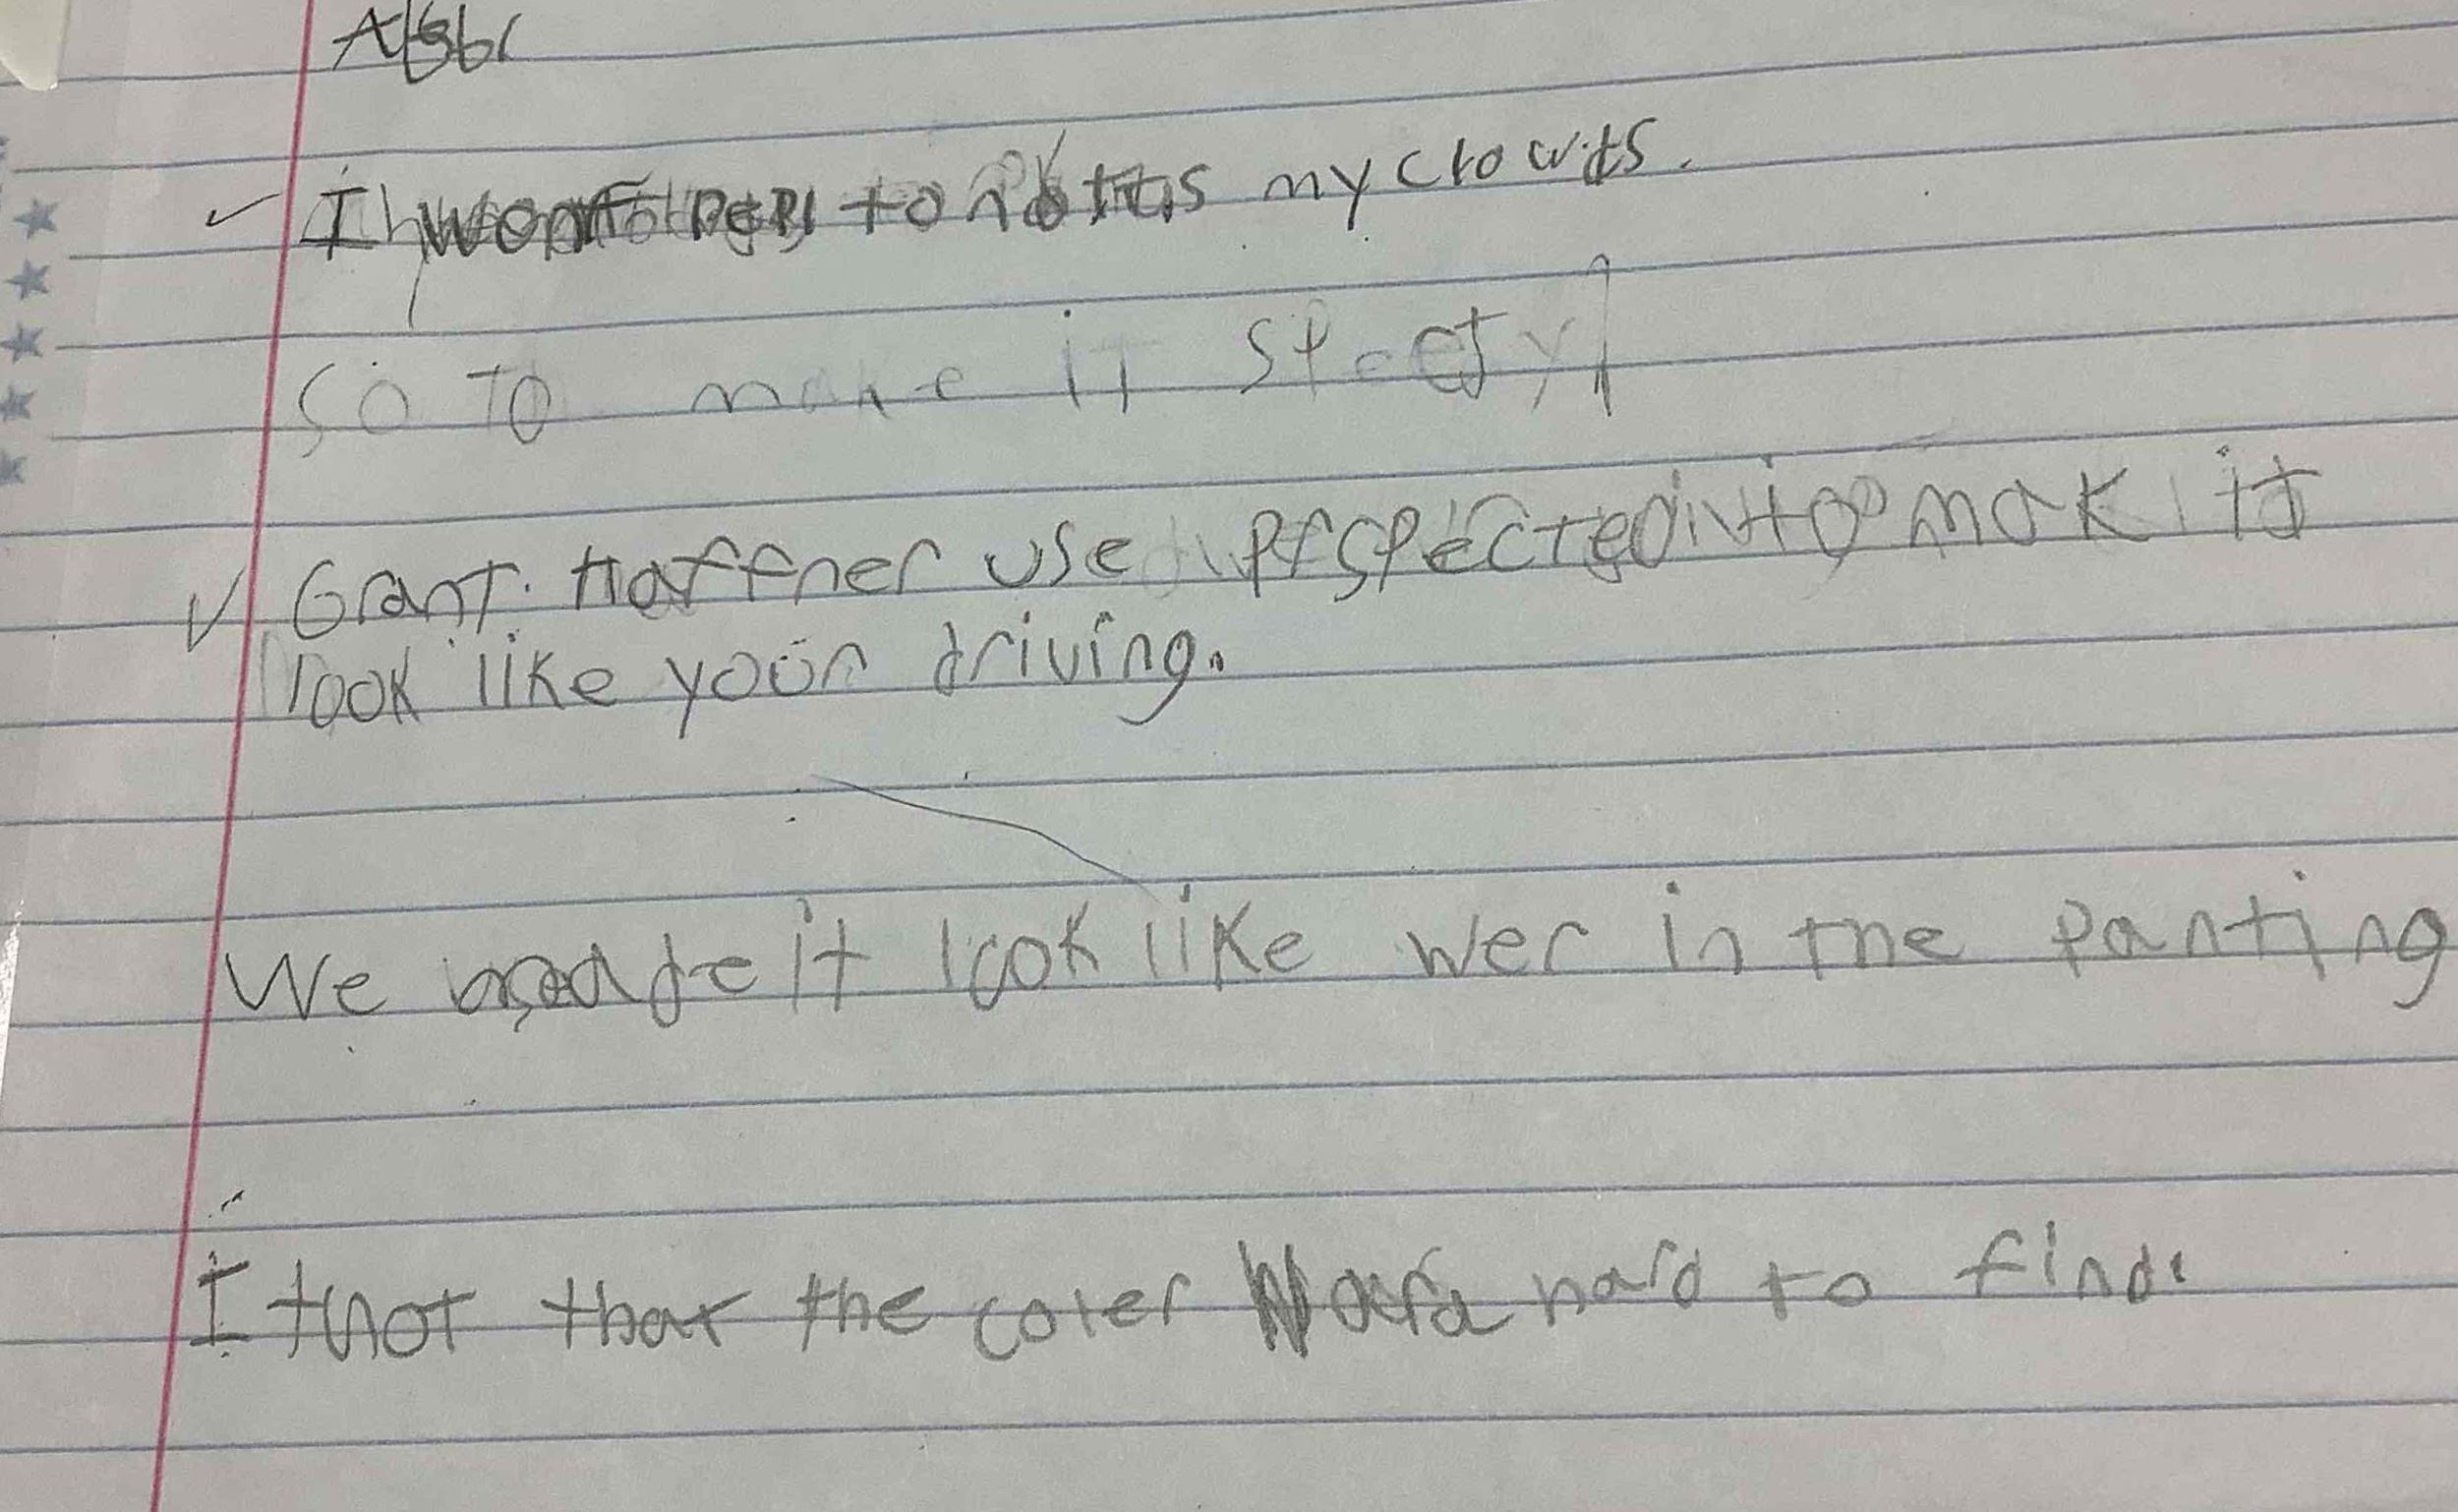 I wont PePl to notis my clowds.
so To make it
Grant. Haffner use prspectedinto mak it
look like your driving.
We made it look like wer in the panting
I thot that the coler hard to find.